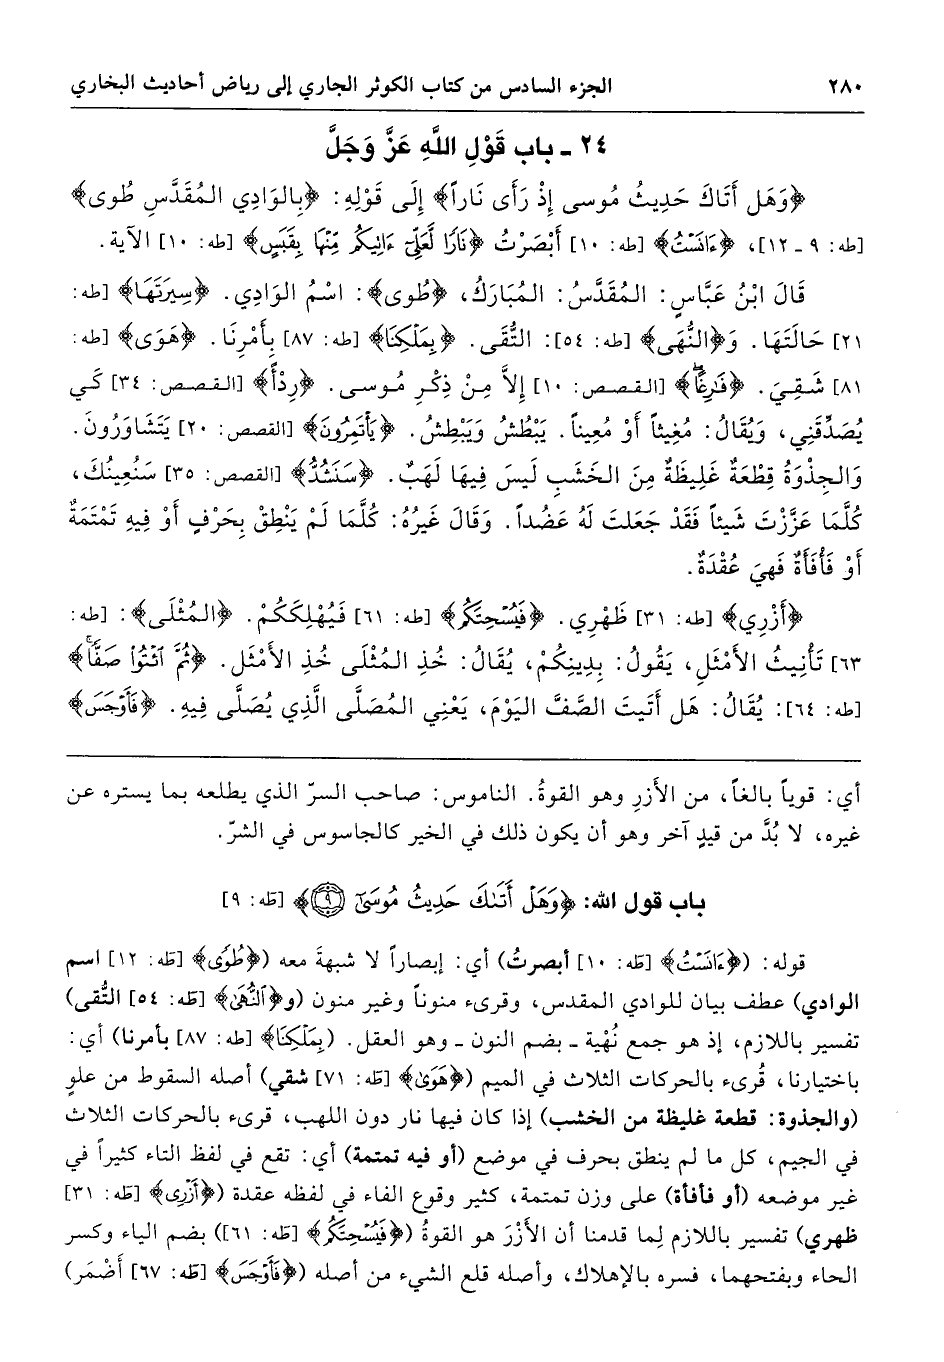 ٢٨٠ الجزء السادس من كتاب الكوثر الجاري إلى رياض أحاديث البخاري
٢٤ ـ باب قَوْلِ اللَّهِ عَزَّ وَجَلَّ
﴿وَهَل أَتَاكَ حَدِيثُ مُوسى إِذْ رَأَى نَاراً﴾ إِلَى قَوْلِهِ: ﴿بِالوَادِي المُقَدَّسِ طُوى﴾
[طه: ٩ ـ ١٢]، ﴿ءَانَسْتُ﴾ [طه: ١٠] أَبْصَرْتُ ﴿نَارًا لَّعَلِّىٓ ءَانِيكُم مِّنْهَا بِقَبَسٍ﴾ [طه: ١٠] الآية.
قَالَ ابْنُ عَبَّاسٍ: المُقَدَّسُ: المُبَارَكُ، ﴿طُوى﴾: اسْمُ الوَادِي. ﴿سِيرَتَهَا﴾ [طه:
٢١] حَالَتَهَا. وَ﴿النُّهَى﴾ [طه: ٥٤]: التُّقَى. ﴿بِمَلْكِنَا﴾ [طه: ٨٧] بِأَمْرِنَا. ﴿هَوَى﴾ [طه:
٨١] شَقِيَ. ﴿فَٰرِغًا﴾ [القصص: ١٠] إِلاَّ مِنْ ذِكْرِ مُوسى. ﴿رِدْأً﴾ [القصص: ٣٤] كَي
يُصَدِّقَنِي، وَيُقَالُ: مُغِيثاً أَوْ مُعِيناً. يَبْطُشُ وَيَبْطِشُ. ﴿يَأْتَمِرُونَ﴾ [القصص: ٢٠] يَتَشَاوَرُونَ.
وَالجِذْوَةُ قِطْعَةٌ غَلِيظَةٌ مِنَ الخَشَبِ لَيسَ فِيهَا لَهَبٌ. ﴿سَنَشُدُّ﴾ [القصص: ٣٥] سَنُعِينُكَ،
كُلَّمَا عَزَّزْتَ شَيئاً فَقَدْ جَعَلتَ لَهُ عَضُداً. وَقَالَ غَيرُهُ: كُلَّمَا لَمْ يَنْطِقْ بِحَرْفٍ أَوْ فِيهِ تَمْتَمَةٌ
أَوْ فَأْفَأَةٌ فَهيَ عُقْدَةٌ.
﴿أَزْرِي﴾ [طه: ٣١] ظَهْرِي. ﴿فَيُسْحِتَكُم﴾ [طه: ٦١] فَيُهْلِكَكُمْ. ﴿المُثْلَى﴾: [طه:
٦٣] تَأْنِيثُ الأَمْثَلِ، يَقُولُ: بِدِينِكُمْ، يُقَالُ: خُذِ المُثْلَى خُذِ الأَمْثَلَ. ﴿ثُمَّ ٱئْتُوا۟ صَفًّا ۚ﴾
[طه: ٦٤]: يُقَالُ: هَل أَتَيتَ الصَّفَّ اليَوْمَ، يَعْنِي المُصَلَّى الَّذِي يُصَلَّى فِيهِ. ﴿فَأَوْجَسَ﴾
أي: قوياً بالغاً، من الأَزرِ وهو القوةُ. الناموس: صاحب السرّ الذي يطلعه بما يستره عن
غيره، لا بُدَّ من قيدٍ آخر وهو أن يكون ذلك في الخير كالجاسوس في الشرّ.
باب قول الله: ﴿وَهَلْ أَتَىٰكَ حَدِيثُ مُوسَىٰٓ ۝٩﴾ [طه: ٩]
قوله: (﴿ءَانَسْتُ﴾ [طه: ١٠] أبصرتُ) أي: إبصاراً لا شبهةَ معه (﴿طُوًى﴾ [طه: ١٢] اسم
الوادي) عطف بيان للوادي المقدس، وقرىء منوناً وغير منون (و﴿ٱلنُّهَىٰ﴾ [طه: ٥٤] التُّقى)
تفسير باللازم، إذ هو جمع نُهْية ـ بضم النون ـ وهو العقل. (بِمَلْكِنَا﴾ [طه: ٨٧] بأمرنا) أي:
باختيارنا، قُرىء بالحركات الثلاث في الميم (﴿هَوَىٰ﴾ [طه: ٧١] شقي) أصله السقوط من علوٍ
(والجذوة: قطعة غليظة من الخشب) إذا كان فيها نار دون اللهب، قرىء بالحركات الثلاث
في الجيم، كل ما لم ينطق بحرف في موضع (أو فيه تمتمة) أي: تقع في لفظ التاء كثيراً في
غير موضعه (أو فأفأة) على وزن تمتمة، كثير وقوع الفاء في لفظه عقدة (﴿أَزْرِى﴾ [طه: ٣١]
ظهري) تفسير باللازم لِما قدمنا أن الأَزْرَ هو القوةُ (﴿فَيُسْحِتَكُم﴾ [طه: ٦١]) بضم الياء وكسر
الحاء وبفتحهما، فسره بالإهلاك، وأصله قلع الشيء من أصله (﴿فَأَوْجَسَ﴾ [طه: ٦٧] أَضْمَر)